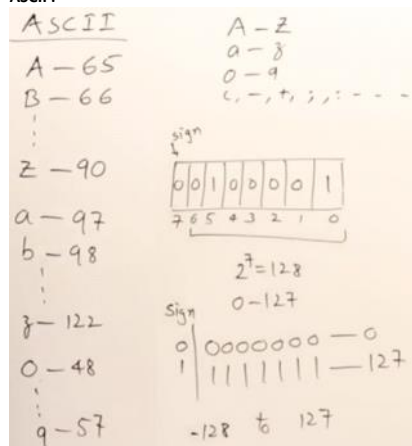 ASCII
ASCII
A — 65
B — 66
⋮
Z — 90
a — 97
b — 98
⋮
z — 122
0 — 48
⋮
9 — 57
A – Z
a – z
0 – 9
(, –, +, ;, : - - - -
sign
0 0 1 0 0 0 0 1
7 6 5 4 3 2 1 0
2⁷ = 128
0 – 127
Sign
0 | 0000000 — 0
1 | 1111111 — 127
-128 to 127